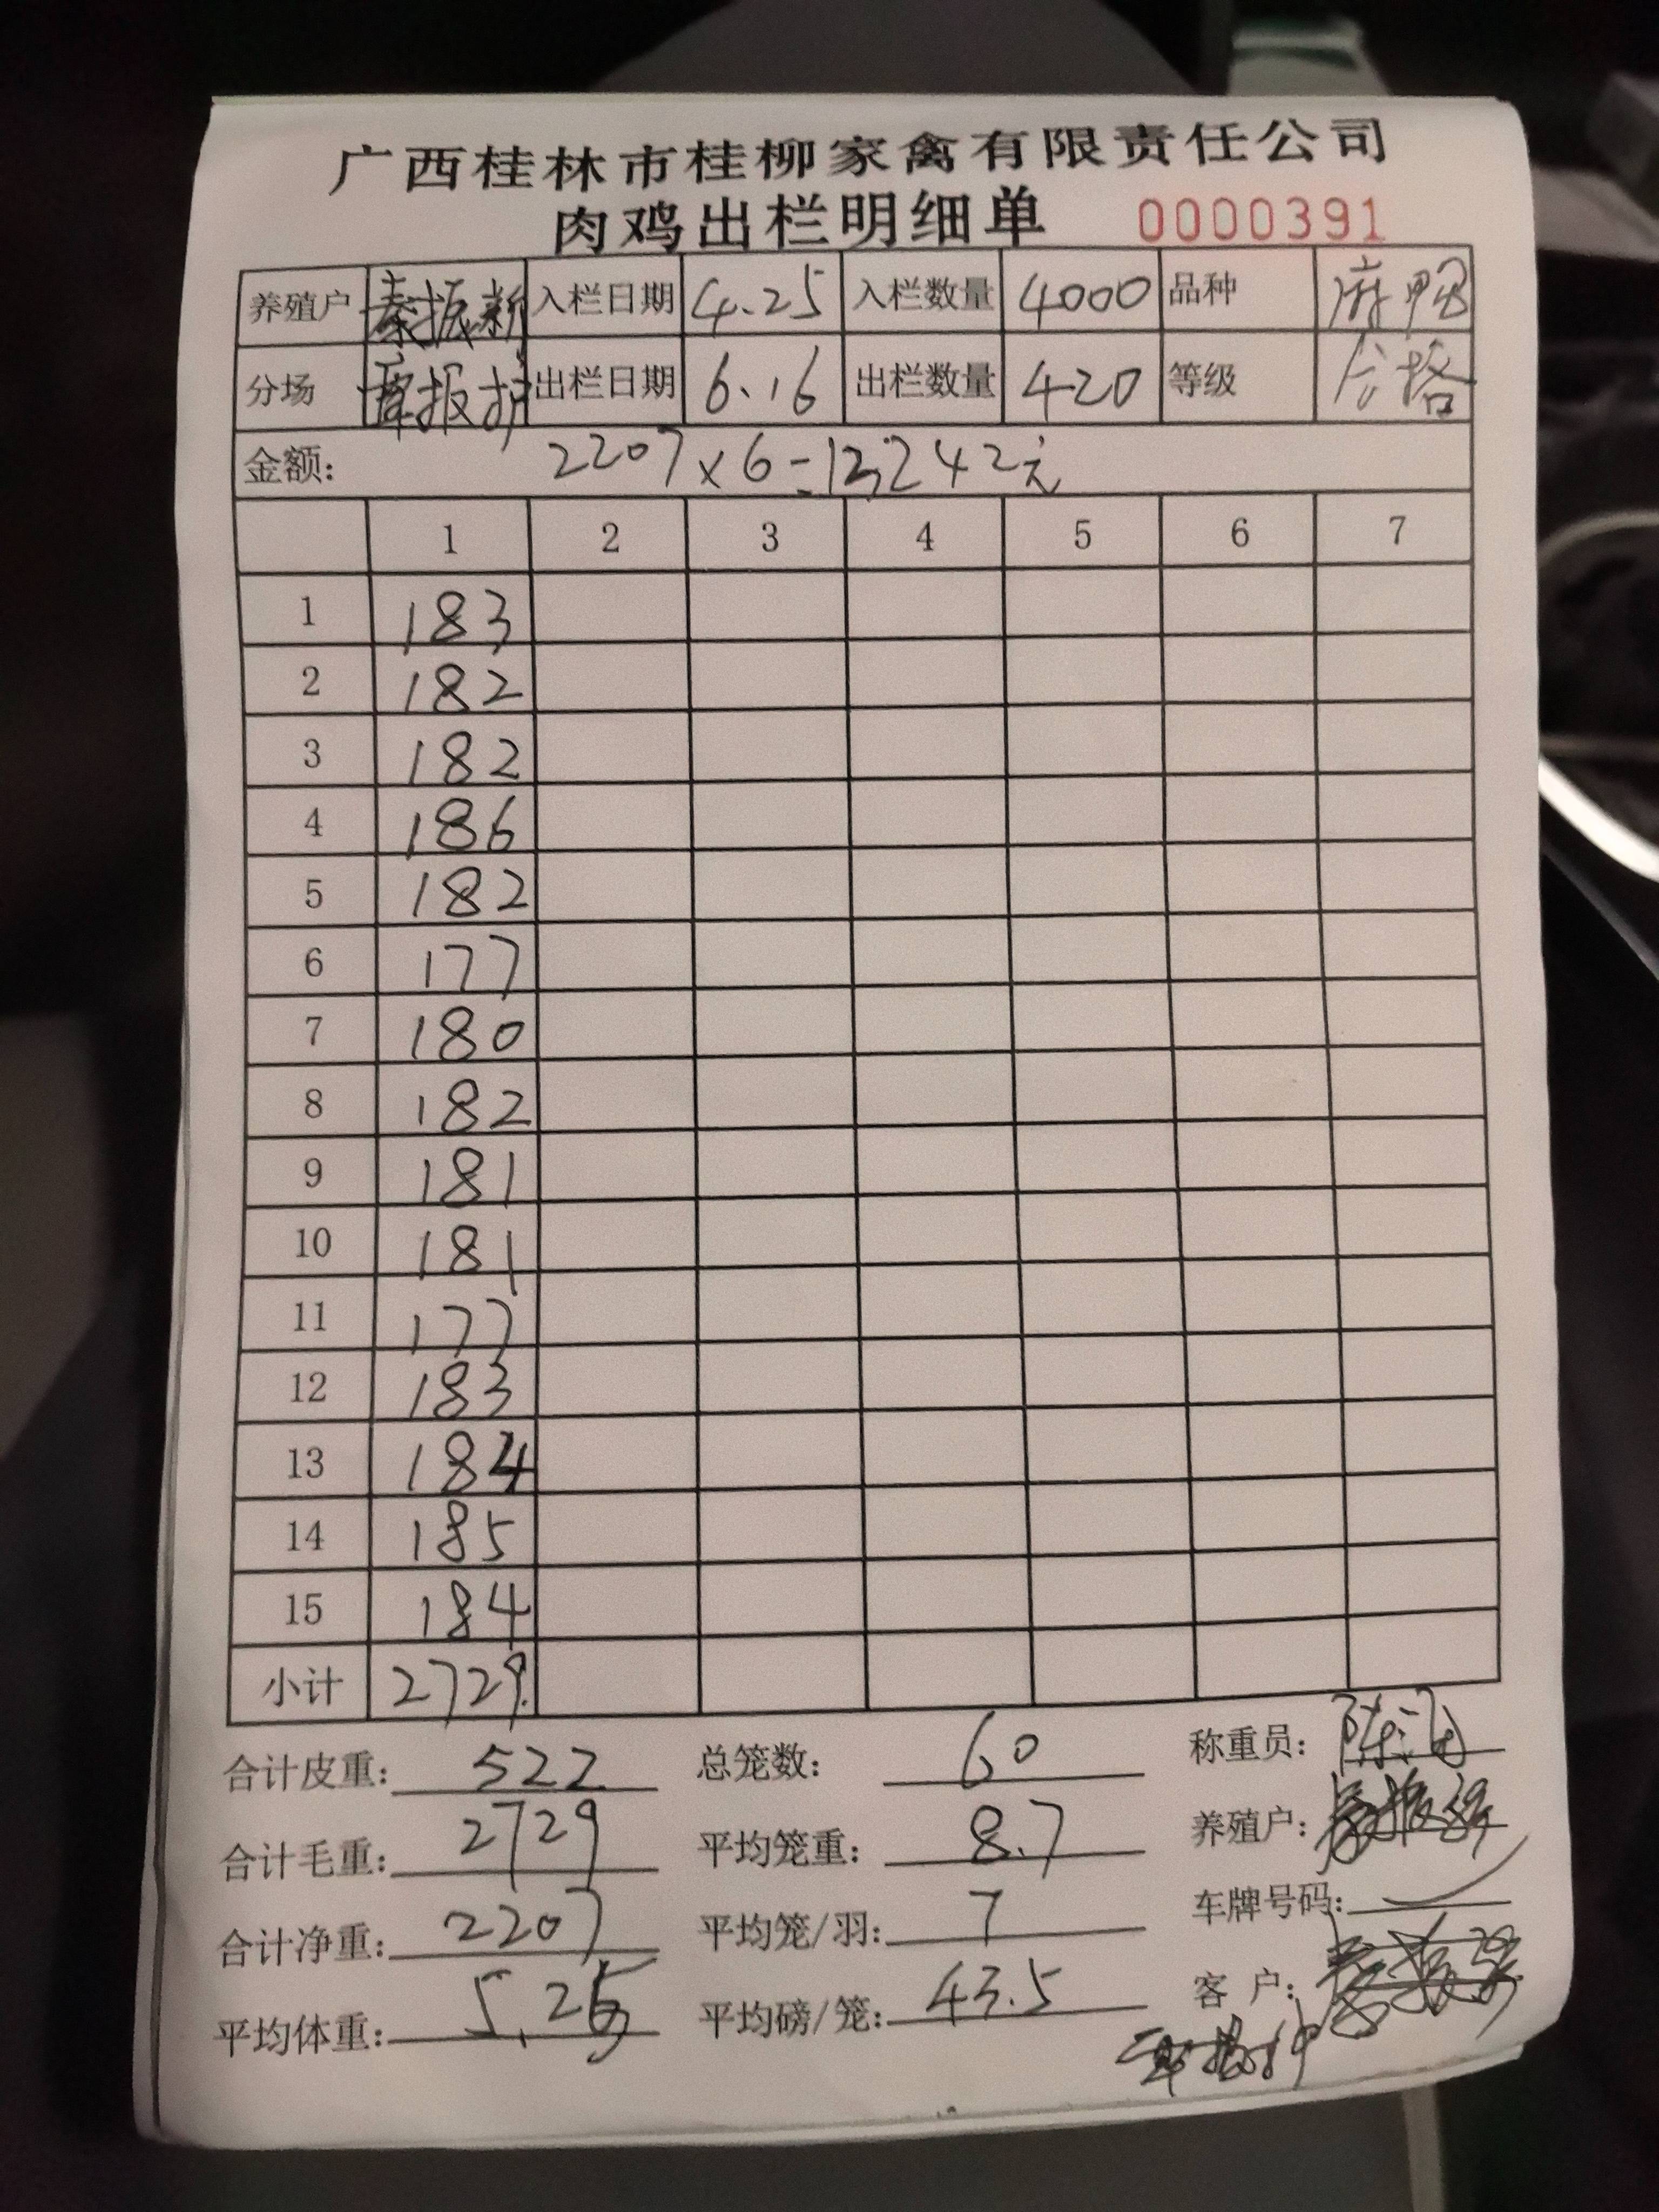 广西桂林市桂柳家禽有限责任公司
肉鸡出栏明细单 0000391
养殖户 秦振新 入栏日期 4.25 入栏数量 4000 品种 麻鸭
分场 出栏日期 6.16 出栏数量 420 等级 合格
金额: 2207×6=13,242元
1 2 3 4 5 6 7
1 183
2 182
3 182
4 186
5 182
6 177
7 180
8 182
9 181
10 181
11 177
12 183
13 184
14 185
15 184
小计 2729.
合计皮重: 522 总笼数: 60 称重员:
合计毛重: 2729 平均笼重: 8.7 养殖户:
合计净重: 2207 平均笼/羽: 7 车牌号码:
平均体重: 平均磅/笼: 43.5 客户: